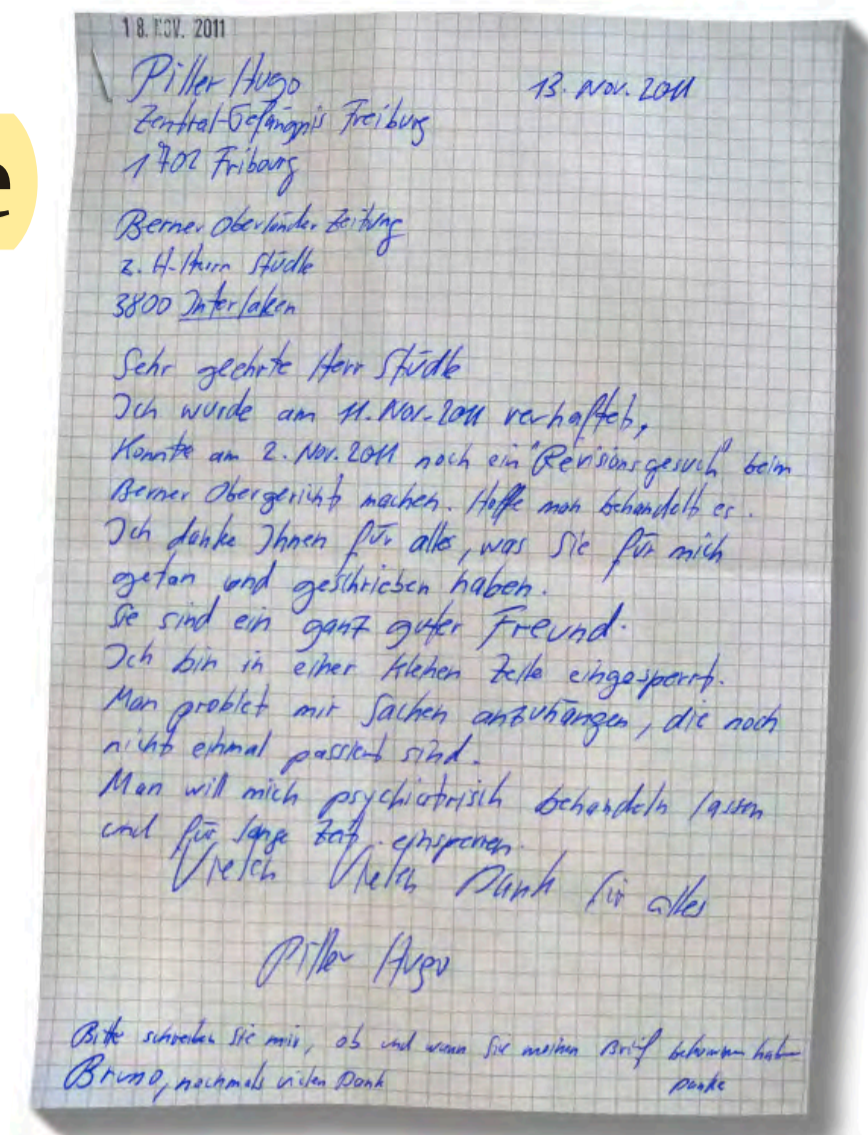 e
18. NOV. 2011
Piller Hugo 13. Nov. 2011
Zentral-Gefängnis Freiburg
1702 Fribourg
Berner Oberländer Zeitung
z. H. Herrn Stüdle
3800 Interlaken
Sehr geehrte Herr Stüdle
Ich wurde am 11. Nov. 2011 verhaftet,
Konnte am 2. Nov. 2011 noch ein "Revisionsgesuch" beim
Berner Obergericht machen. Hoffe man behandelt es.
Ich danke Ihnen für alles, was Sie für mich
getan und geschrieben haben.
Sie sind ein ganz guter Freund.
Ich bin in einer kleinen Zelle eingesperrt.
Man probiet mir Sachen anzuhängen, die noch
nicht einmal passiert sind.
Man will mich psychiatrisch behandeln lassen
und für lange Zeit einsperren.
Vielen Vielen Dank für alles
Piller Hugo
Bitte schreiben Sie mir, ob und wann Sie meinen Brief bekommen haben
Bruno, nochmals vielen Dank Danke